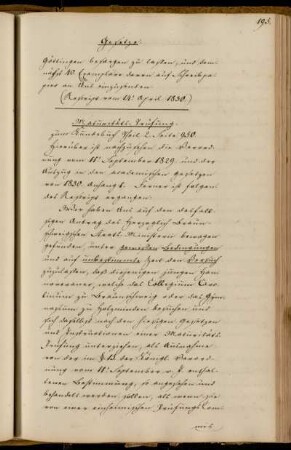 193.
Gesetze
Göttingen besorgen zu lassen, und dem-
nächst 10 Exemplare davon auf Schreibpa-
pier an Uns einzusenden.
(Rescript vom 14ᵗ April 1830.)
Maturitäts-Prüfung.
zum Handbuch Theil 2. Seite 430.
Hierüber ist nachzusehen die Verord-
nung vom 11ᵗ September 1829. und der
Auszug in den academischen Gesetzen
von 1830 Anhang. Ferner ist folgen-
des Rescript ergangen
Wir haben Uns auf den desfall-
sigen Antrag des Herzoglich Braun-
schweigischen Staats-Ministerii bewogen
gefunden, unter gewissen Bedingungen
und auf unbestimmte Zeit den Versuch
zuzulassen, daß diejenigen jungen Han-
noveraner, welche das Collegium Caro-
linum zu Braunschweig oder das Gym-
nasium zu Holzminden besuchen und
sich daselbst nach den hiesigen Gesetzen
und Instructionen einer Maturitäts-
Prüfung unterziehen, als Ausnahme
von der im Königl. Verord-
nung vom 11ᵗ September v. J. ent-
haltenen Bestimmung, so angesehen und
behandelt werden sollen, als wenn sie
von einer einheimischen Prüfungs Com-